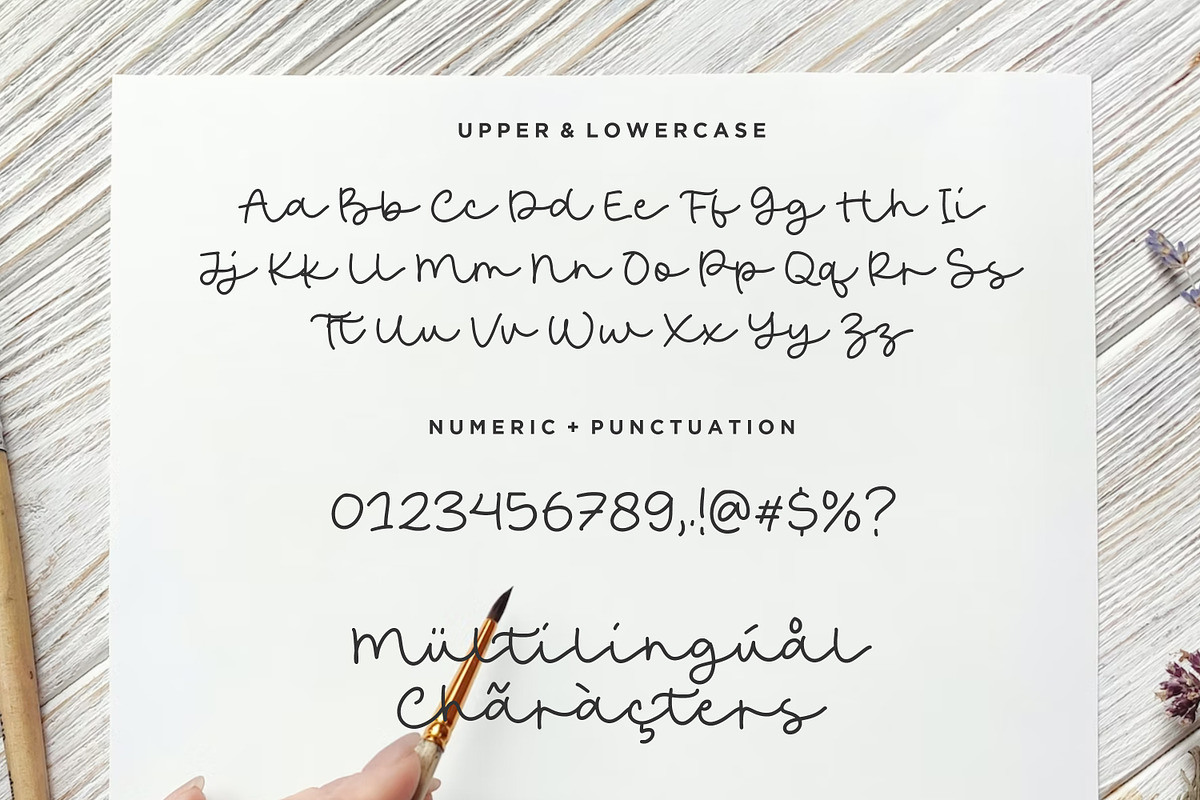 UPPER & LOWERCASE
Aa Bb Cc Dd Ee Ff Gg Hh Ii
Jj Kk Ll Mm Nn Oo Pp Qq Rr Ss
Tt Uu Vv Ww Xx Yy Zz
NUMERIC + PUNCTUATION
0123456789,.!@#$%?
Mültílíngúål
Chãràçters